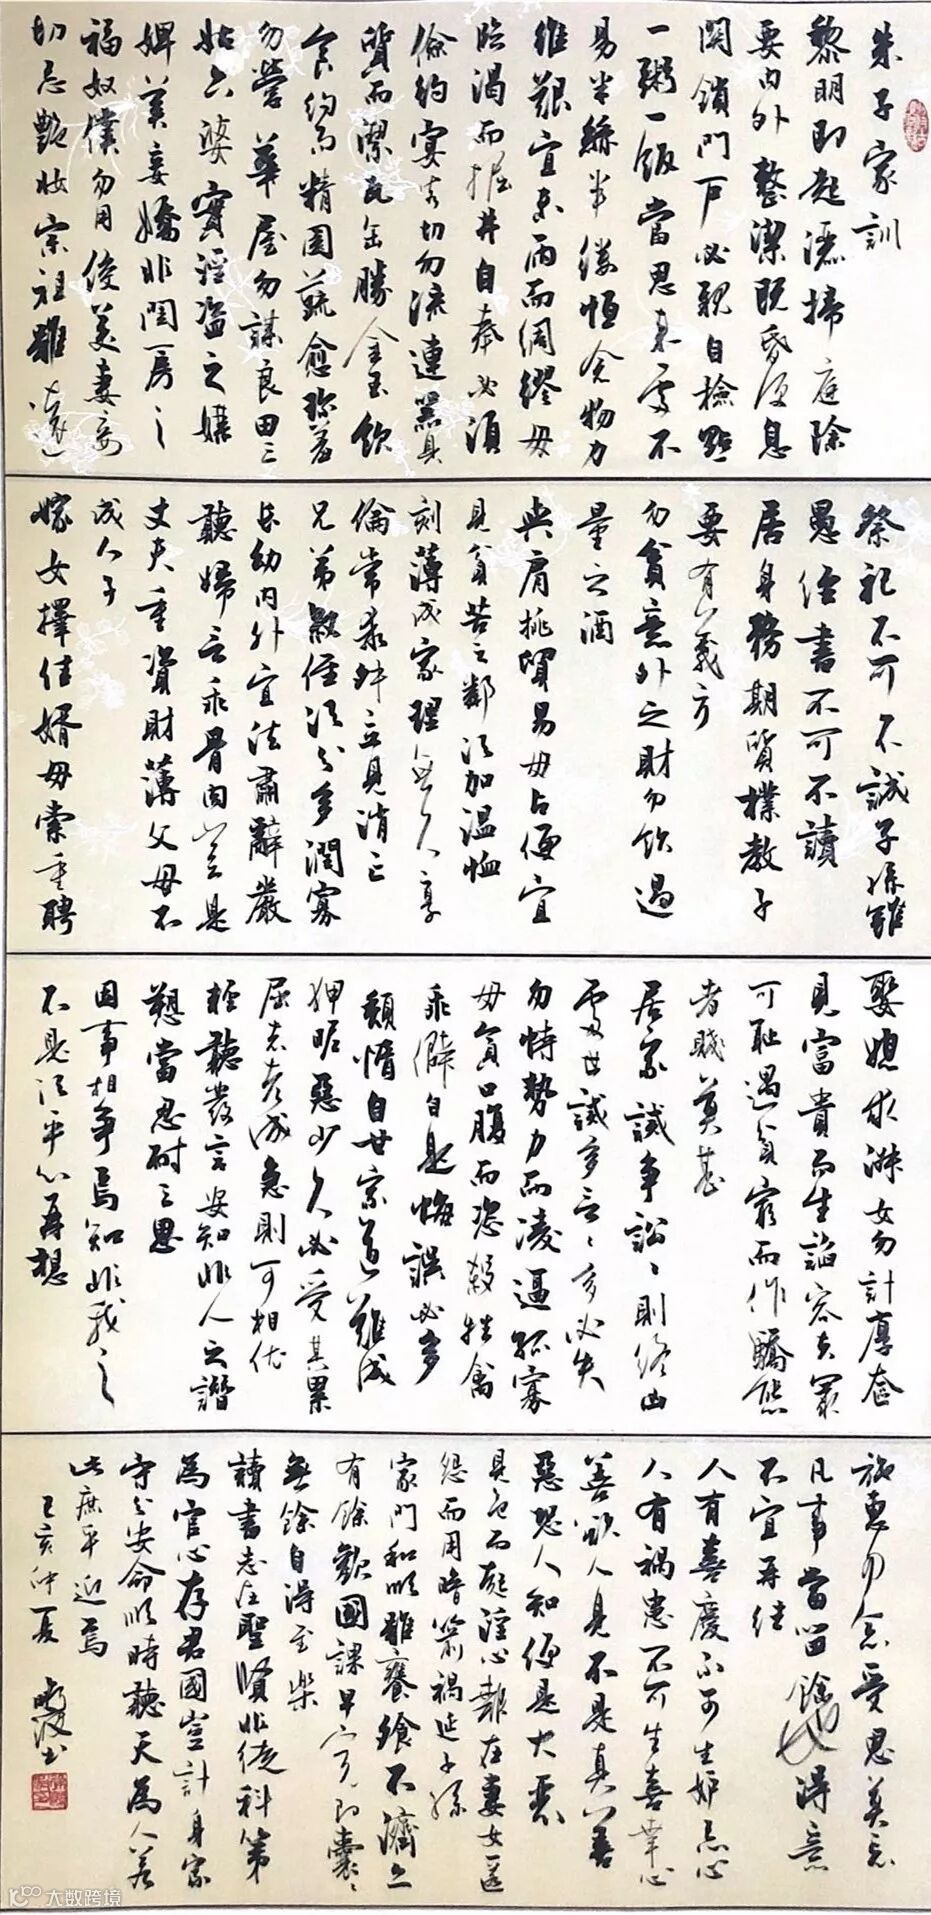 朱子家訓
黎明即起灑掃庭除
要內外整潔既昏便息
関鎖門戶必親自檢點
一粥一飯當思來處不
易半絲半縷恒念物力
維艱宜未雨而綢繆毋
臨渴而掘井自奉必須
儉約宴客切勿流連器具
質而潔瓦缶勝金玉飲
食約而精園蔬愈珍羞
勿營華屋勿謀良田三
姑六婆實淫盜之媒
婢美妾嬌非閨房之
福奴僕勿用俊美妻妾
切忌艷妝宗祖雖遠
祭祀不可不誠子孫雖
愚經書不可不讀
居身務期質樸教子
要有義方
勿貪意外之財勿飲過
量之酒
與肩挑貿易毋占便宜
見貧苦之鄰須加溫恤
刻薄成家理無久享
倫常乖舛立見消亡
兄弟叔侄須分多潤寡
長幼內外宜法肅辭嚴
聽婦言乖骨肉豈是
丈夫重資財薄父母不
成人子
嫁女擇佳婿毋索重聘
娶媳求淑女勿計厚奩
見富貴而生諂容者最
可恥遇貧窮而作驕態
者賤莫甚
居家誡爭訟訟則終凶
處世誡多言言多必失
勿恃勢力而淩逼孤寡
毋貪口腹而恣殺牲禽
乖僻自是悔誤必多
頹惰自甘家道難成
狎昵惡少久必受其累
屈志老成急則可相依
輕聽發言安知非人之譖
愬當忍耐三思
因事相爭焉知非我之
不是須平心再想
施惠勿念受恩莫忘
凡事當留餘地得意
不宜再往
人有喜慶不可生妒忌心
人有禍患不可生喜幸心
善欲人見不是真善
惡恐人知便是大惡
見色而起淫心報在妻女匿
怨而用暗箭禍延子孫
家門和順雖饔飧不濟亦
有餘歡國課早完即囊橐
無餘自得至樂
讀書志在聖賢非徒科第
為官心存君國豈計身家
守分安命順時聽天為人若
此庶乎近焉
己亥仲夏 書
大数跨境